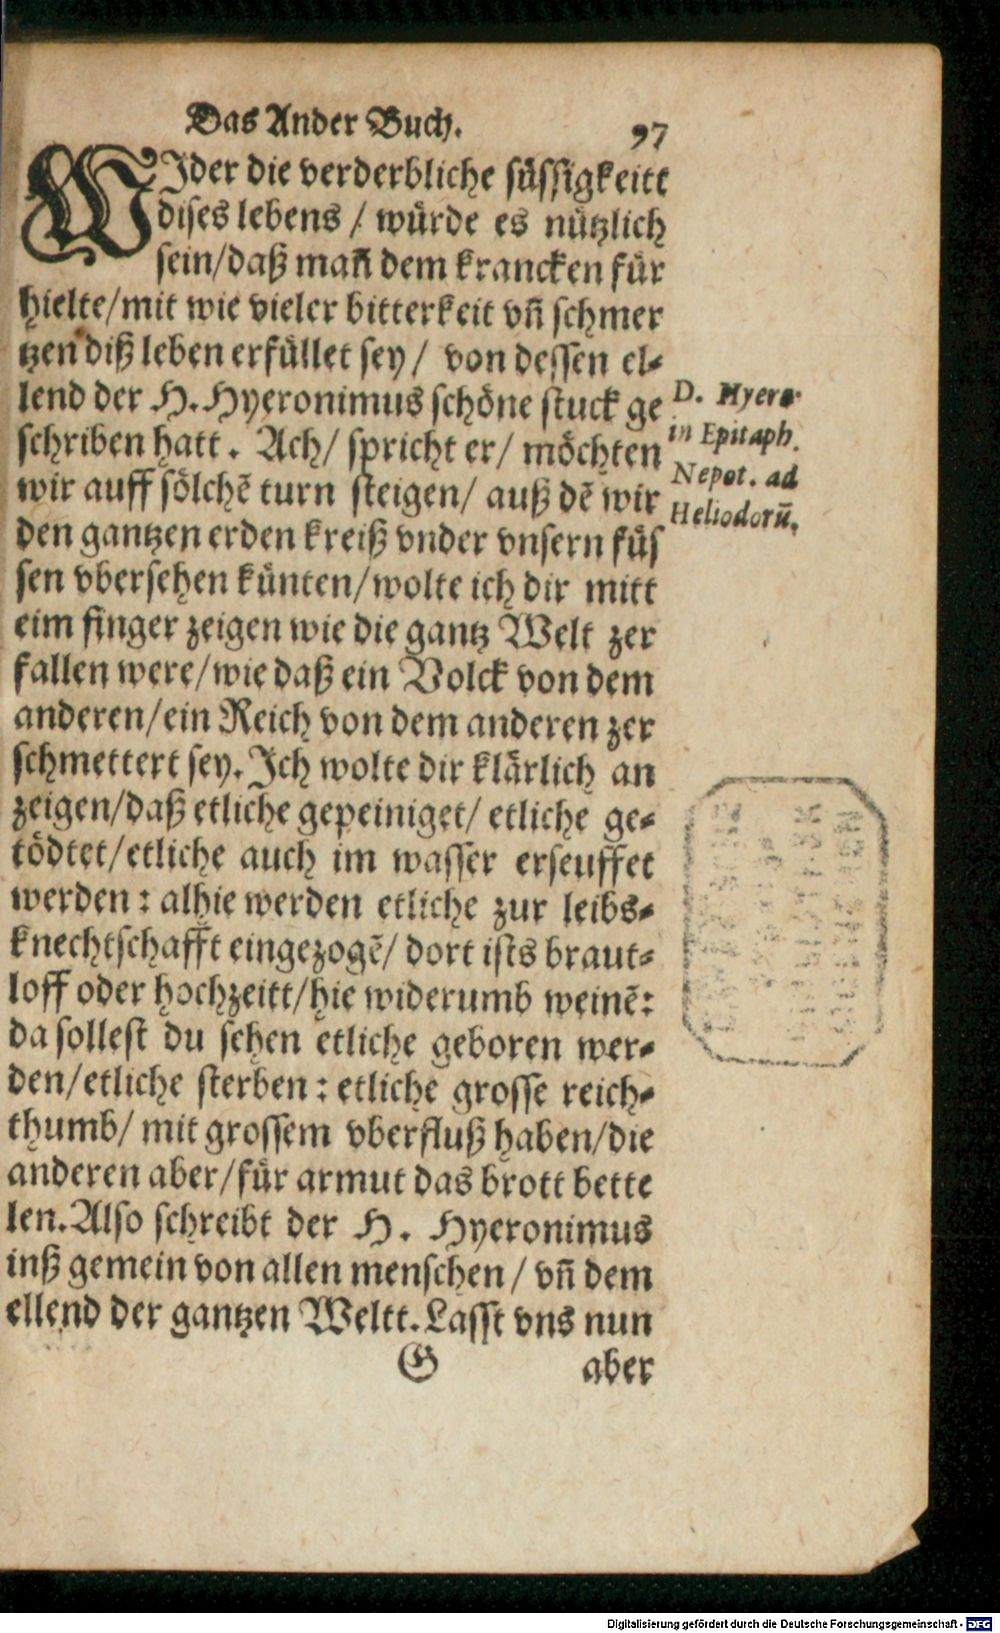 Das Ander Buch. 97
WIder die verderbliche süssigkeitt
dises lebens / würde es nützlich
sein/daß mañ dem krancken für
hielte/mit wie vieler bitterkeit vñ schmer
tzen diß leben erfüllet sey/ von dessen el-
lend der H. Hyeronimus schöne stuck ge
schriben hatt. Ach/ spricht er/ möchten
wir auff sölchē turn steigen/ auß dē wir
den gantzen erden kreiß vnder vnsern füs
sen vbersehen künten/wolte ich dir mitt
eim finger zeigen wie die gantz Welt zer
fallen were/wie daß ein Volck von dem
anderen/ein Reich von dem anderen zer
schmettert sey. Ich wolte dir klärlich an
zeigen/daß etliche gepeiniget/ etliche ge-
tödtet/etliche auch im wasser erseuffet
werden: alhie werden etliche zur leibs-
knechtschafft eingezogē/ dort ists braut-
loff oder hochzeitt/hie widerumb weinē:
da sollest du sehen etliche geboren wer-
den/etliche sterben: etliche grosse reich-
thumb/ mit grossem vberfluß haben/die
anderen aber/für armut das brott bette
len. Also schreibt der H. Hyeronimus
inß gemein von allen menschen/ vñ dem
ellend der gantzen Weltt. Lasst vns nun
G aber
D. Hyero.
in Epitaph.
Nepot. ad
Heliodorū.
Digitalisierung gefördert durch die Deutsche Forschungsgemeinschaft - DFG